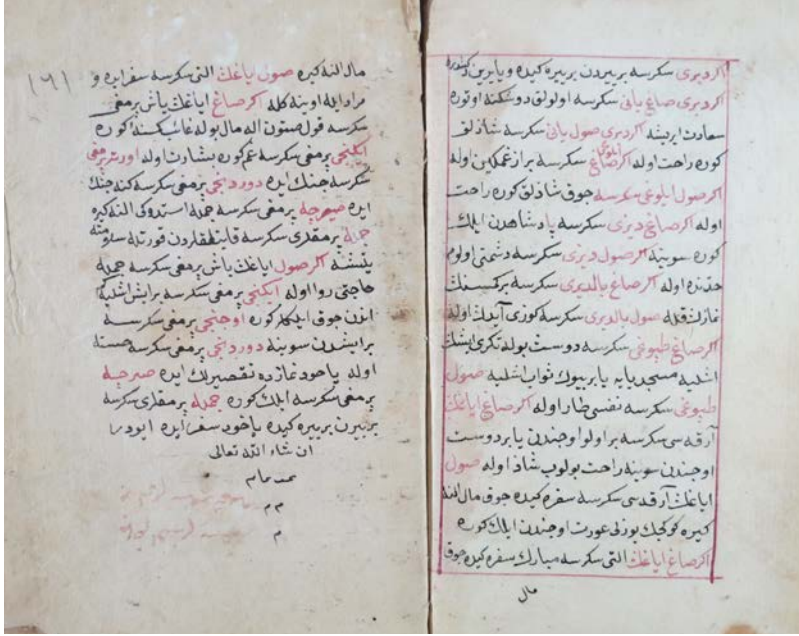 اكر ديزى سكرسه بر ييردن بر ييره كيده و يا يرين دكشوره
اكر ديزى صاغ يانى سكرسه اولولق دوشكنه اوتوره
سعادت ايريشه اكر ديزى صول يانى سكرسه شاذلق
كوره راحت اوله اكر صاغ ايلوغى سكرسه بر از غمكين اوله
اكر صول ايلوغى سكرسه جوق شاذلق كوره راحت
اوله اكر صاغ ديزى سكرسه پادشاهدن ايلك
كوره سوينه اكر صول ديزى سكرسه دشمنى اولوم
حدنده اوله اكر صاغ بالديرى سكرسه بركسنك
نمازك قله صول بالديرى سكرسه كوزى آيدك اوله
اكر صاغ طپوغى سكرسه دوست بوله تكرى ايشك
اشليه مسجد ياپه يا بر بيوك ثواب اشليه صول
طپوغى سكرسه نفسى طار اوله اكر صاغ اياغك
آرقه سى سكرسه بر اولو اوجندن يا بر دوست
اوجندن سوينه راحت بولوب شاذ اوله صول
اياغك آرقه سى سكرسه سفره كيده جوق مال النه
كيره كوكجك يوزلى عورت اوجندن ايلك كوره
اكر صاغ اياغك التى سكرسه مبارك سفره كيده جوق
مال
١٦١
مال النه كيره صول اياغك التى سكرسه سفر ايده و
مراد ايله اوينه كله اكر صاغ اياغك باش برمغى
سكرسه قول ستون اله مال بوله غائب كسنه كوره
ايكنجى برمغى سكرسه غم كوره بشارت اوله اورته برمغى
سكرسه جنك ايده دوردنجى برمغى سكرسه كنه جنك
ايده صيرجه برمغى سكرسه جمله استدوكى النه كيره
جمله برمقلرى سكرسه قايغولردن قورتله سلامته
يتشه اكر صول اياغك باش برمغى سكرسه جمله
حاجتى روا اوله ايكنجى برمغى سكرسه بر ايش اشليه
اندن جوق ايلكلر كوره اوجنجى برمغى سكرسه
بر ايشدن سوينه دوردنجى برمغى سكرسه خسته
اوله ياخود نمازده تقصيرلك ايده صيرجه
برمغى سكرسه ايلك كوره جمله برمقلرى سكرسه
بر ييردن بر ييره كيده ياخود سفر ايده ايودر
ان شاء الله تعالى
تمت تمام
م م
م